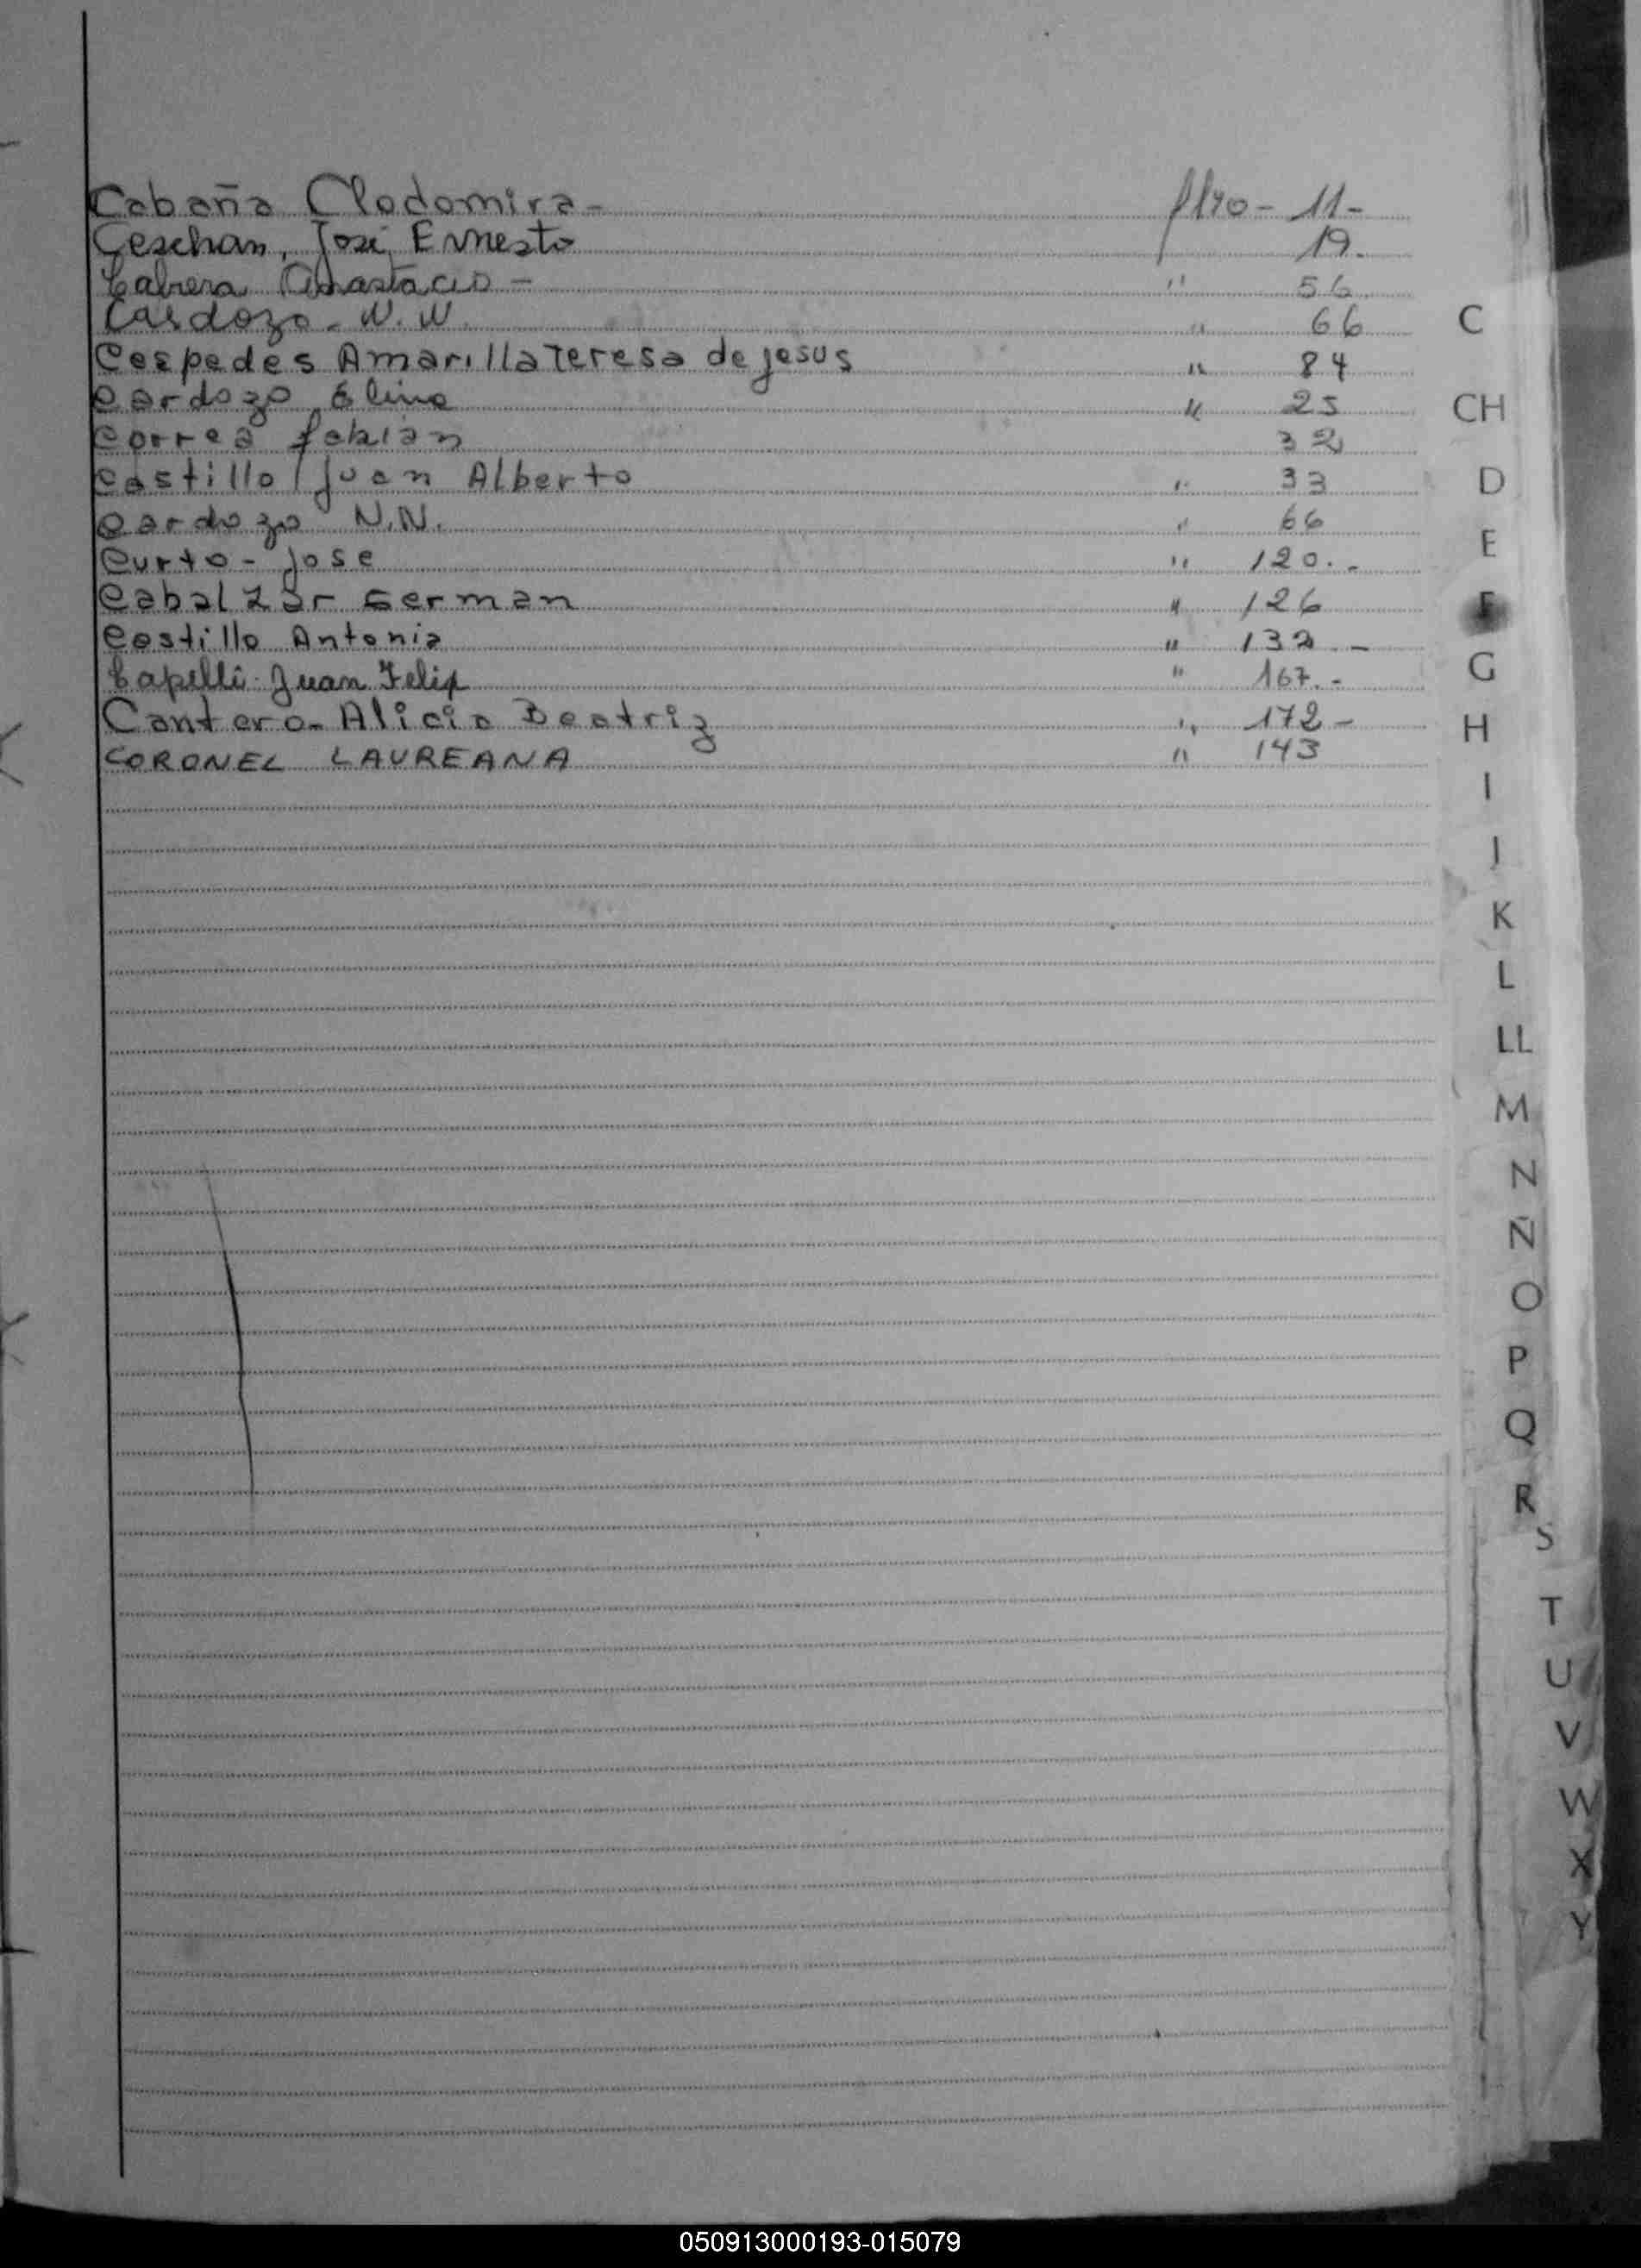 Cabaña Clodomira - flio - 11 -
Ceschan, José Ernesto 19.
Cabrera Anastacio - " 56
Cardozo - N.N. " 66
Cespedes Amarilla Teresa de jesus " 84
Cardozo Elina " 25
Correa fabian 32
Castillo Juan Alberto " 33
Cardozo N.N. " 66
Curto - jose " 120. -
Cabalzar German " 126
Castillo Antonia " 132 -
Capelli - Juan Felix " 167. -
Cantero - Alicia Beatriz " 172 -
CORONEL LAUREANA " 143
C
CH
D
E
F
G
H
I
J
K
L
LL
M
N
Ñ
O
P
Q
R
S
T
U
V
W
X
Y
050913000193-015079